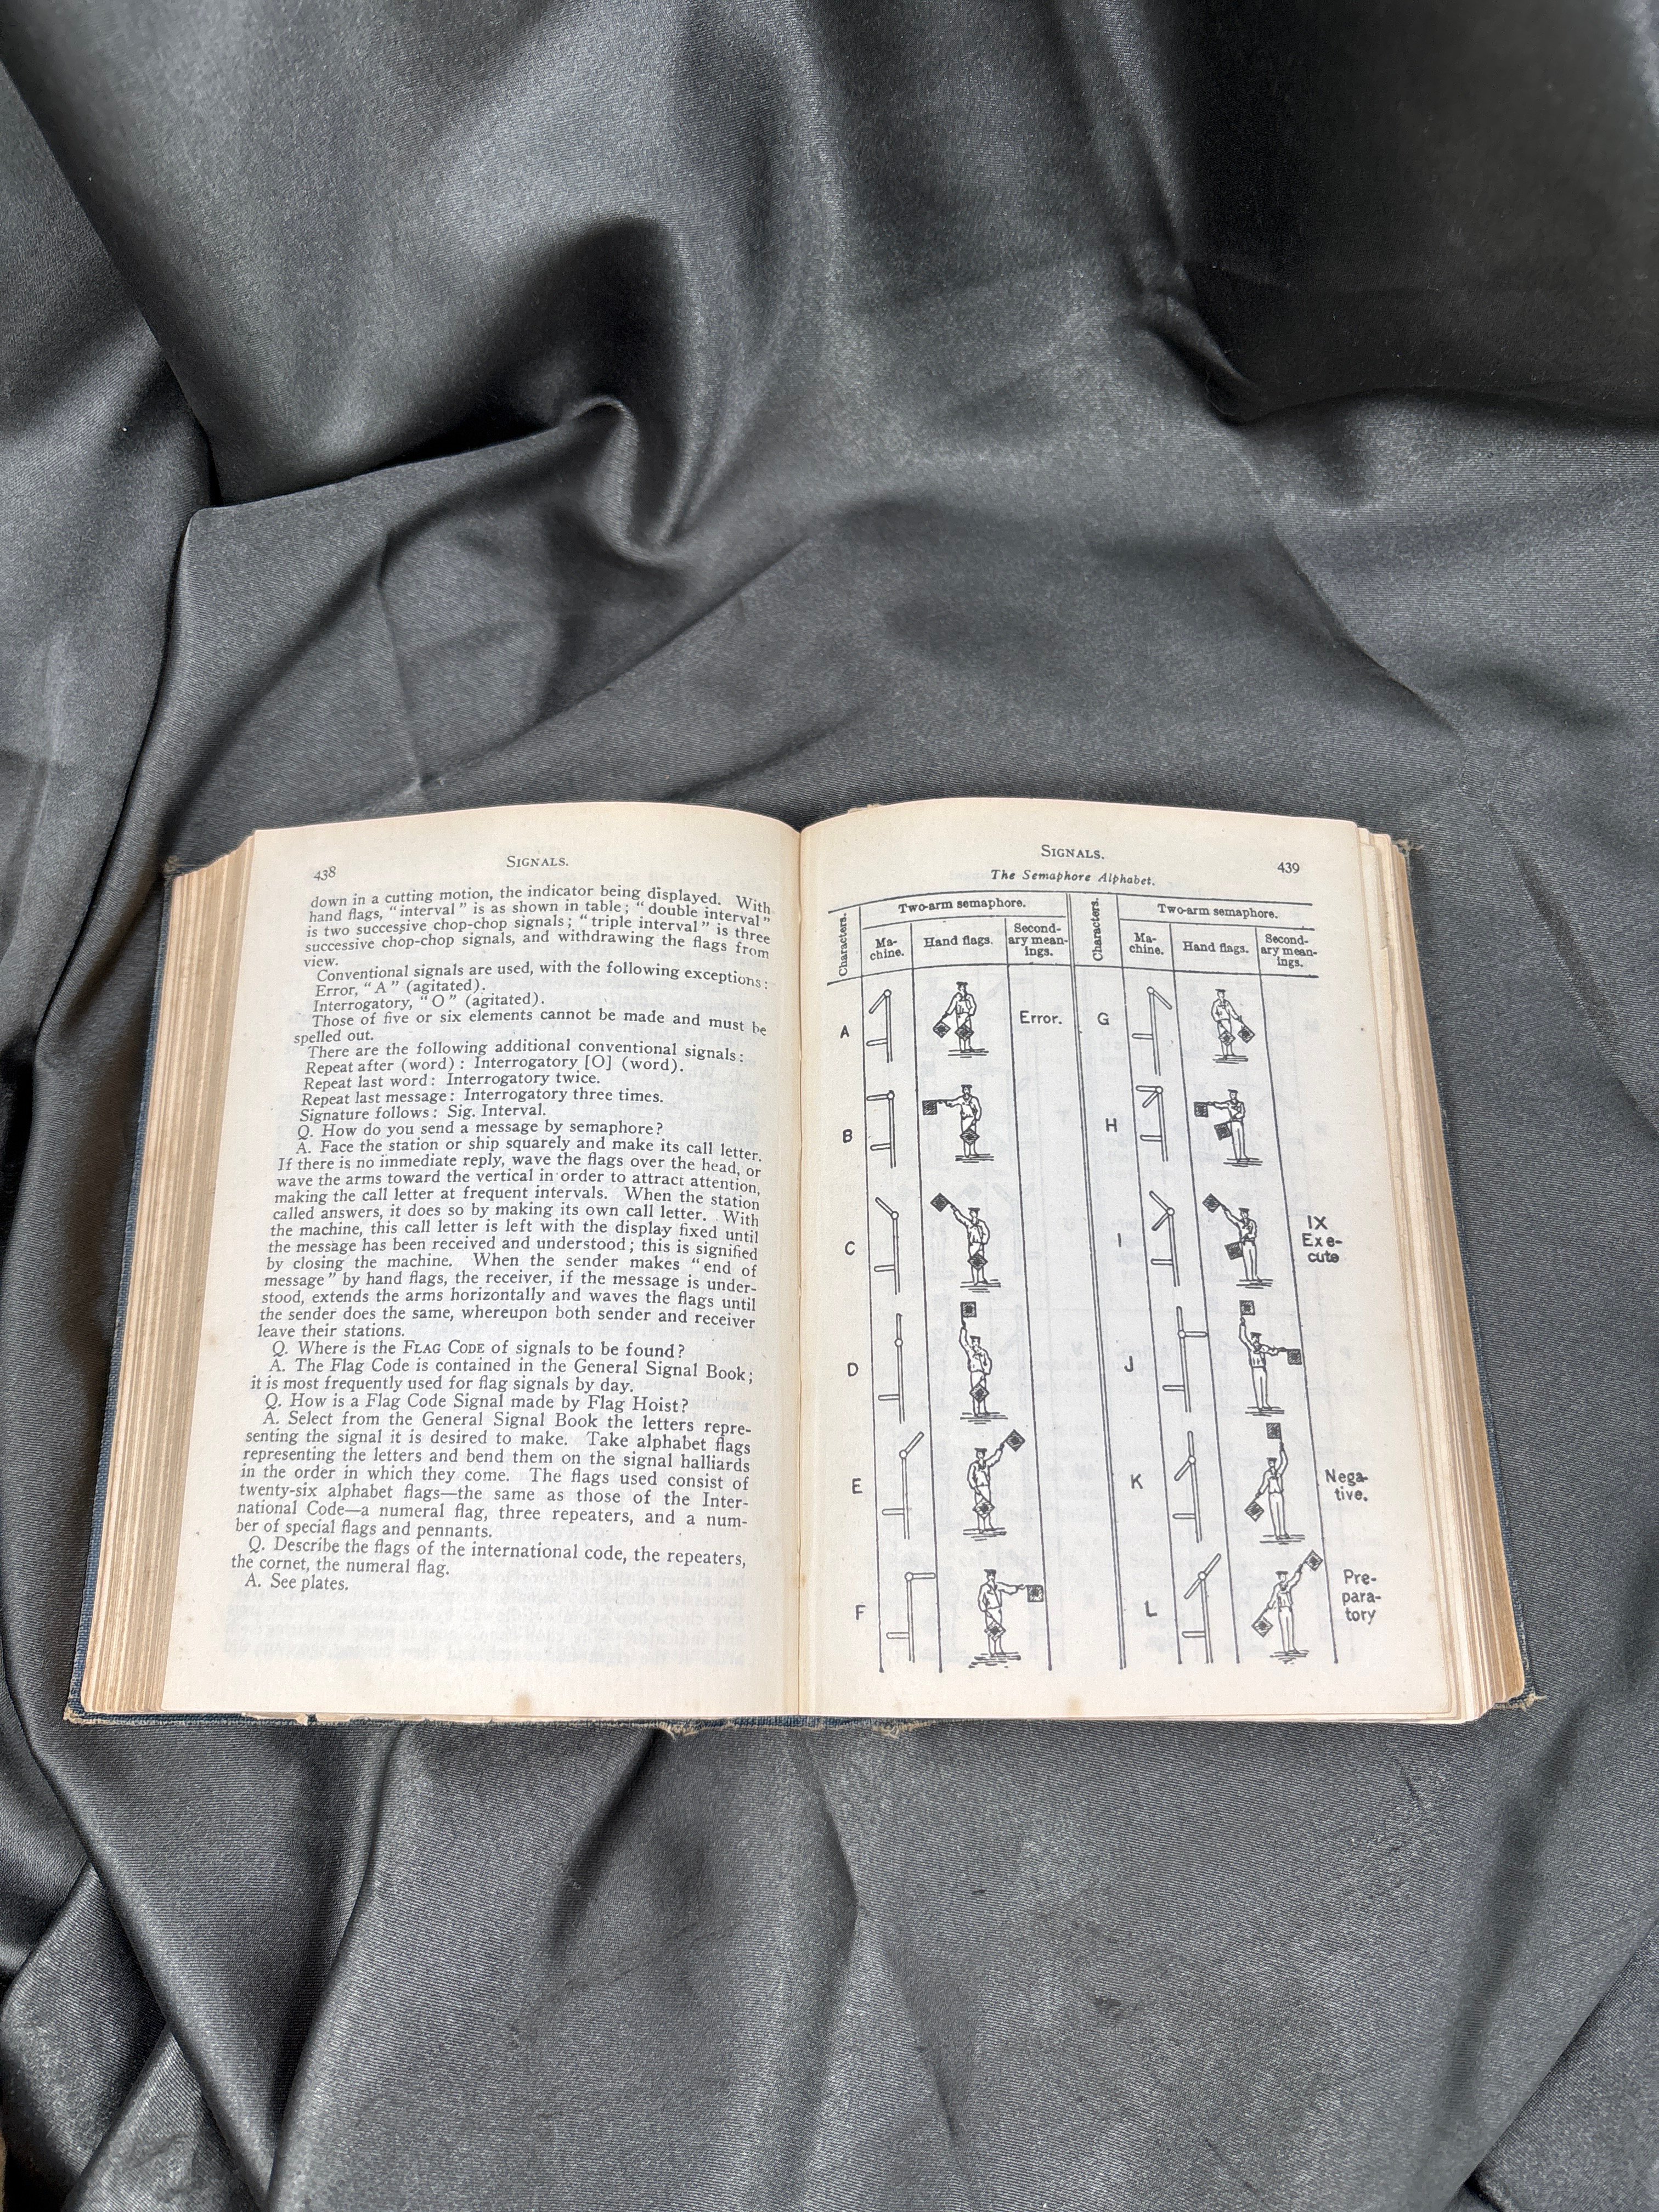 438
SIGNALS.
down in a cutting motion, the indicator being displayed. With
hand flags, "interval" is as shown in table; "double interval"
is two successive chop-chop signals; "triple interval" is three
successive chop-chop signals, and withdrawing the flags from
view.
Conventional signals are used, with the following exceptions:
Error, "A" (agitated).
Interrogatory, "O" (agitated).
Those of five or six elements cannot be made and must be
spelled out.
There are the following additional conventional signals:
Repeat after (word): Interrogatory [O] (word).
Repeat last word: Interrogatory twice.
Repeat last message: Interrogatory three times.
Signature follows: Sig. Interval.
Q. How do you send a message by semaphore?
A. Face the station or ship squarely and make its call letter.
If there is no immediate reply, wave the flags over the head, or
wave the arms toward the vertical in order to attract attention,
making the call letter at frequent intervals. When the station
called answers, it does so by making its own call letter. With
the machine, this call letter is left with the display fixed until
the message has been received and understood; this is signified
by closing the machine. When the sender makes "end of
message" by hand flags, the receiver, if the message is under-
stood, extends the arms horizontally and waves the flags until
the sender does the same, whereupon both sender and receiver
leave their stations.
Q. Where is the FLAG CODE of signals to be found?
A. The Flag Code is contained in the General Signal Book;
it is most frequently used for flag signals by day.
Q. How is a Flag Code Signal made by Flag Hoist?
A. Select from the General Signal Book the letters repre-
senting the signal it is desired to make. Take alphabet flags
representing the letters and bend them on the signal halliards
in the order in which they come. The flags used consist of
twenty-six alphabet flags—the same as those of the Inter-
national Code—a numeral flag, three repeaters, and a num-
ber of special flags and pennants.
Q. Describe the flags of the international code, the repeaters,
the cornet, the numeral flag.
A. See plates.
SIGNALS.
439
The Semaphore Alphabet.
Characters.
Two-arm semaphore.
Ma-
chine.
Hand flags.
Second-
ary mean-
ings.
A
Error.
B
C
D
E
F
Characters.
Two-arm semaphore.
Ma-
chine.
Hand flags.
Second-
ary mean-
ings.
G
H
I
IX
Exe-
cute
J
K
Nega-
tive.
L
Pre-
para-
tory